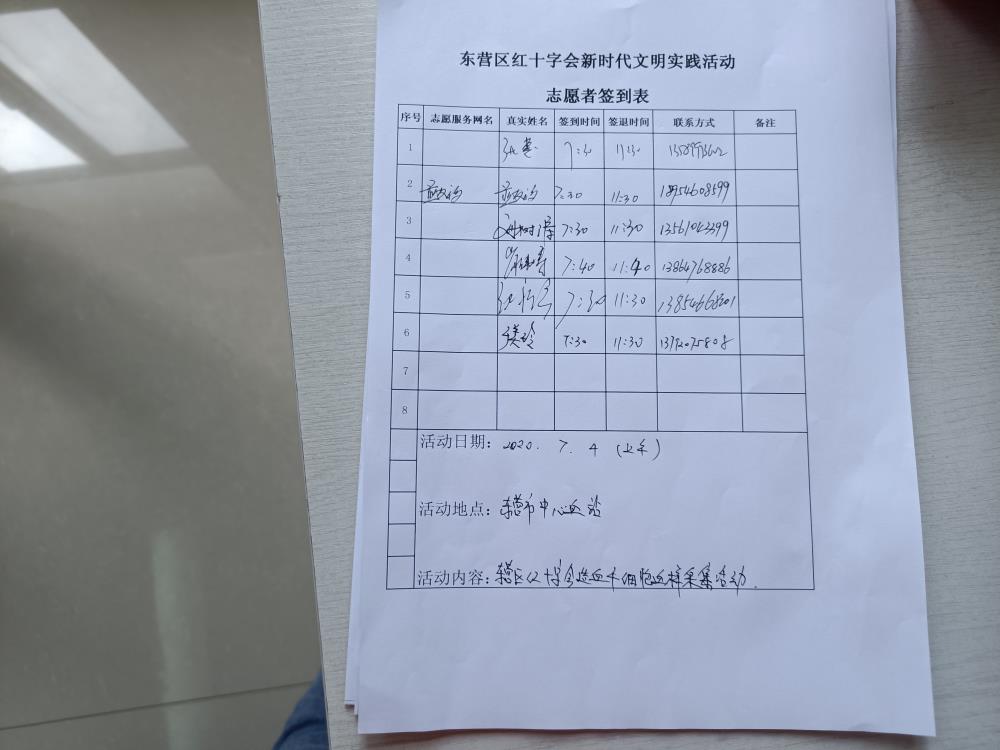 东营区红十字会新时代文明实践活动
志愿者签到表
序号 志愿服务网名 真实姓名 签到时间 签退时间 联系方式 备注
1 7:30 11:30
2 7:30 11:30 18954608599
3 7:30 11:30
4 7:40 11:40 13864768886
5 7:30 11:30
6 7:30 11:30
7
8
活动日期: 2020. 7. 4 (上午)
活动地点: 东营市中心血站
活动内容: 东营区红十字会造血干细胞血样采集活动.